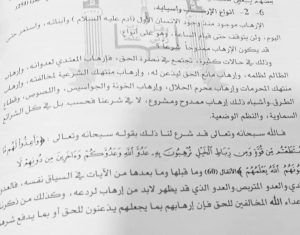 2 - أنواع الإرهاب وأسبابه:
الإرهاب موجود منذ وجود الإنسان الأول (آدم عليه السلام) وأبنائه، واستمر حتى
اليوم، ولن يتوقف حتى قيام الساعة، وهو على أنواع
قد يكون الإرهاب ممدوحاً شرعاً
وذلك في حالات كثيرة، تجتمع في نصرة الحق، فإرهاب المعتدي لعدوانه، وإرهاب
الظالم لظلمه، وإرهاب مانع الحق ليذعن له، وإرهاب منتهك الشرعية لمخالفته، وإرهاب
منتهك الحرمات وإرهاب محرم الحلال، وإرهاب الخونة والجواسيس، واللصوص، وقطاع
الطرق وأشباه ذلك إرهاب ممدوح ومشروع، لا في شرعنا فحسب بل في كل الشرائع
السماوية، والنظم الوضعية.
فالله سبحانه وتعالى قد شرع لنا ذلك بقوله سبحانه وتعالى: ﴿وَأَعِدُّوا لَهُم مَّا
اسْتَطَعْتُم مِّن قُوَّةٍ وَمِن رِّبَاطِ الْخَيْلِ تُرْهِبُونَ بِهِ عَدُوَّ اللَّهِ وَعَدُوَّكُمْ وَآخَرِينَ مِن دُونِهِمْ لَا
تَعْلَمُونَهُمُ اللَّهُ يَعْلَمُهُمْ﴾ الأنفال (60) وما قبلها وما بعدها من الآيات في السياق نفسه، فالعدو
والعدو المتربص والعدو الذي قد يظهر لابد من إرهابه لردعه، وكذلك من
أعداء الله المخالفين للحق فإن إرهابهم بما يجعلهم يذعنون للحق أو بما يدفع